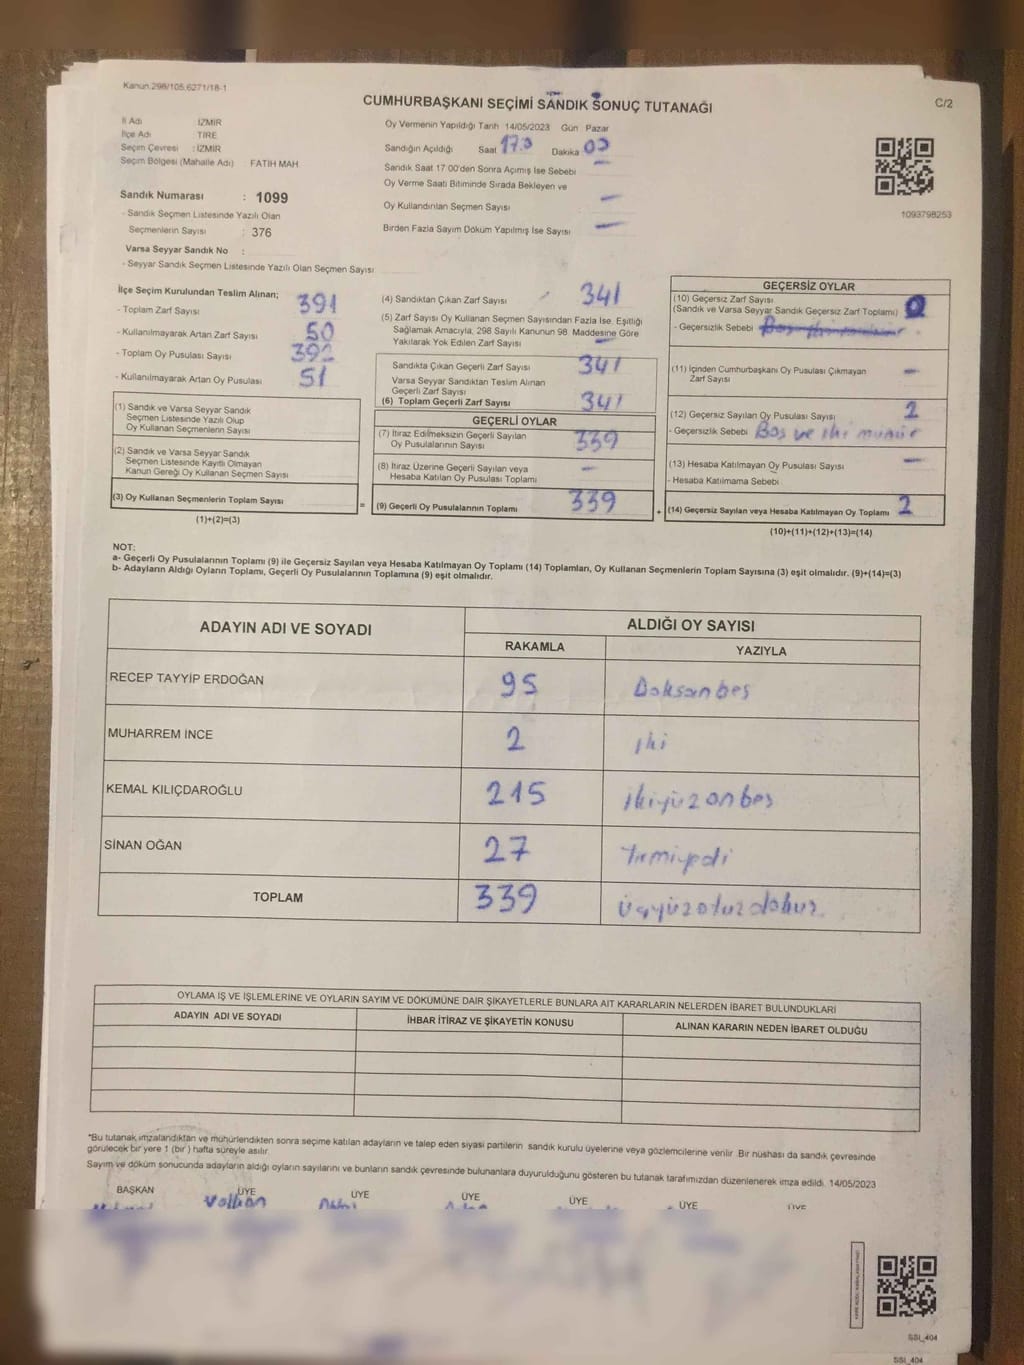 Kanun.298/105,6271/18-1
CUMHURBAŞKANI SEÇİMİ SANDIK SONUÇ TUTANAĞI
C/2
İl Adı İZMİR
İlçe Adı TİRE
Seçim Çevresi : İZMİR
Seçim Bölgesi (Mahalle Adı) FATİH MAH
Oy Vermenin Yapıldığı Tarih 14/05/2023 Gün Pazar
Sandığın Açıldığı Saat 17.0 Dakika 00
Sandık Saat 17:00'den Sonra Açımış İse Sebebi –
Oy Verme Saati Bitiminde Sırada Bekleyen ve
Oy Kullandırılan Seçmen Sayısı –
Birden Fazla Sayım Döküm Yapılmış İse Sayısı –
1093798253
Sandık Numarası : 1099
- Sandık Seçmen Listesinde Yazılı Olan
Seçmenlerin Sayısı : 376
Varsa Seyyar Sandık No :
- Seyyar Sandık Seçmen Listesinde Yazılı Olan Seçmen Sayısı
İlçe Seçim Kurulundan Teslim Alınan;
- Toplam Zarf Sayısı 391
- Kullanılmayarak Artan Zarf Sayısı 50
- Toplam Oy Pusulası Sayısı 392
- Kullanılmayarak Artan Oy Pusulası 51
(1) Sandık ve Varsa Seyyar Sandık
Seçmen Listesinde Yazılı Olup
Oy Kullanan Seçmenlerin Sayısı
(2) Sandık ve Varsa Seyyar Sandık
Seçmen Listesinde Kayıtlı Olmayan
Kanun Gereği Oy Kullanan Seçmen Sayısı
(3) Oy Kullanan Seçmenlerin Toplam Sayısı
(1)+(2)=(3)
(4) Sandıktan Çıkan Zarf Sayısı 341
(5) Zarf Sayısı Oy Kullanan Seçmen Sayısından Fazla İse, Eşitliği
Sağlamak Amacıyla, 298 Sayılı Kanunun 98. Maddesine Göre
Yakılarak Yok Edilen Zarf Sayısı –
Sandıkta Çıkan Geçerli Zarf Sayısı 341
Varsa Seyyar Sandıktan Teslim Alınan
Geçerli Zarf Sayısı
(6) Toplam Geçerli Zarf Sayısı 341
GEÇERLİ OYLAR
(7) İtiraz Edilmeksizin Geçerli Sayılan
Oy Pusulalarının Sayısı 339
(8) İtiraz Üzerine Geçerli Sayılan veya
Hesaba Katılan Oy Pusulası Toplamı –
= (9) Geçerli Oy Pusulalarının Toplamı 339
GEÇERSİZ OYLAR
(10) Geçersiz Zarf Sayısı
(Sandık ve Varsa Seyyar Sandık Geçersiz Zarf Toplamı)
- Geçersizlik Sebebi
(11) İçinden Cumhurbaşkanı Oy Pusulası Çıkmayan
Zarf Sayısı –
(12) Geçersiz Sayılan Oy Pusulası Sayısı 2
- Geçersizlik Sebebi Boş ve iki mühür
(13) Hesaba Katılmayan Oy Pusulası Sayısı –
- Hesaba Katılmama Sebebi
+ (14) Geçersiz Sayılan veya Hesaba Katılmayan Oy Toplamı 2
(10)+(11)+(12)+(13)=(14)
NOT:
a- Geçerli Oy Pusulalarının Toplamı (9) ile Geçersiz Sayılan veya Hesaba Katılmayan Oy Toplamı (14) Toplamları, Oy Kullanan Seçmenlerin Toplam Sayısına (3) eşit olmalıdır. (9)+(14)=(3)
b- Adayların Aldığı Oyların Toplamı, Geçerli Oy Pusulalarının Toplamına (9) eşit olmalıdır.
ADAYIN ADI VE SOYADI
ALDIĞI OY SAYISI
RAKAMLA YAZIYLA
RECEP TAYYİP ERDOĞAN 95 Doksanbeş
MUHARREM İNCE 2 iki
KEMAL KILIÇDAROĞLU 215 ikiyüzonbeş
SİNAN OĞAN 27 Yirmiyedi
TOPLAM 339 üçyüzotuzdokuz
OYLAMA İŞ VE İŞLEMLERİNE VE OYLARIN SAYIM VE DÖKÜMÜNE DAİR ŞİKAYETLERLE BUNLARA AİT KARARLARIN NELERDEN İBARET BULUNDUKLARI
ADAYIN ADI VE SOYADI İHBAR İTİRAZ VE ŞİKAYETİN KONUSU ALINAN KARARIN NEDEN İBARET OLDUĞU
*Bu tutanak imzalandıktan ve mühürlendikten sonra seçime katılan adayların ve talep eden siyasi partilerin sandık kurulu üyelerine veya gözlemcilerine verilir. Bir nüshası da sandık çevresinde
görülecek bir yere 1 (bir) hafta süreyle asılır.
Sayım ve döküm sonucunda adayların aldığı oyların sayılarını ve bunların sandık çevresinde bulunanlara duyurulduğunu gösteren bu tutanak tarafımızdan düzenlenerek imza edildi. 14/05/2023
BAŞKAN ÜYE ÜYE ÜYE ÜYE ÜYE ÜYE
Volkan
SSI_404
SSI_404